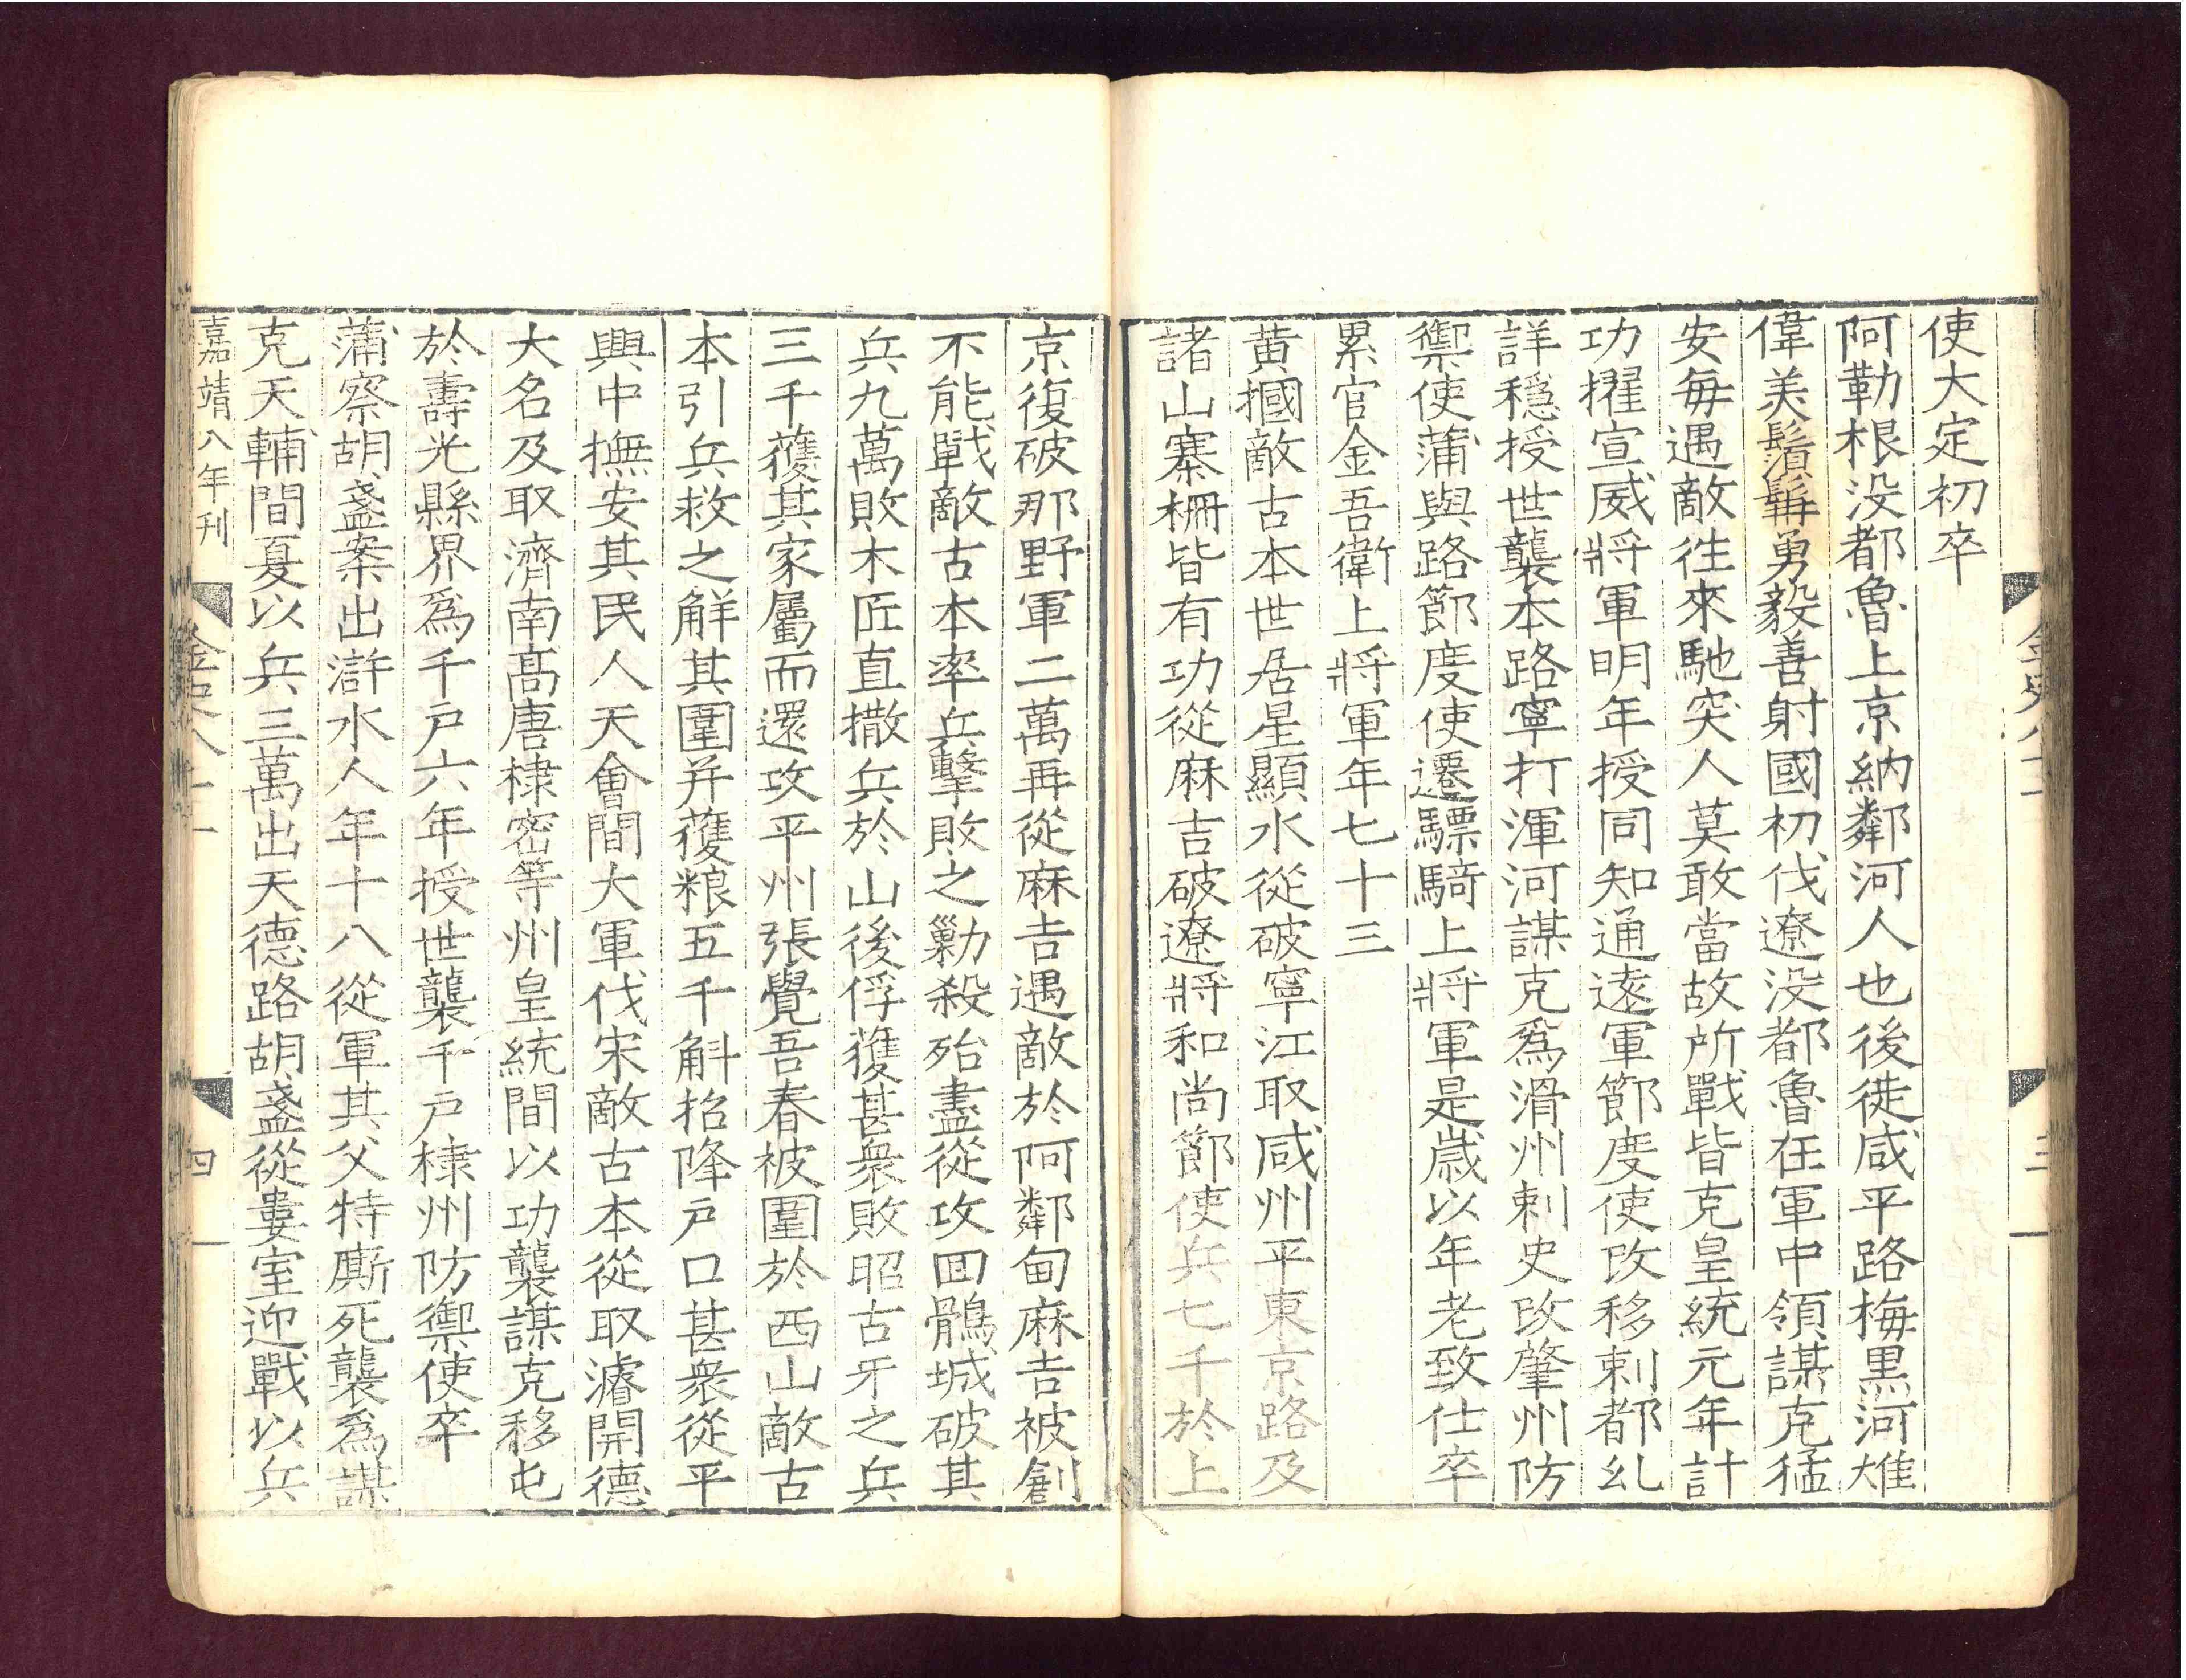 金史八十一
三
使大定初卒
阿勒根没都魯上京納鄰河人也後徙咸平路梅黒河雄
偉美鬚髯勇毅善射國初伐遼没都魯在軍中領謀克猛
安毎遇敵徃來馳突人莫敢當故所戰皆克皇統元年計
功擢宣威將軍明年授同知通逺軍節度使改移剌都乣
詳穩授世襲本路寧打渾河謀克爲滑州刺史改肇州防
禦使蒲與路節度使遷驃騎上將軍是歲以年老致仕卒
累官金吾衛上將軍年七十三
黃摑敵古本世居星顯水從破寧江取咸州平東京路及
諸山寨柵皆有功從麻吉破遼將和尚節使兵七千於上
京復破那野軍二萬再從麻吉遇敵於阿鄰甸麻吉被創
不能戰敵古本率兵擊敗之勦殺殆盡從攻回鶻城破其
兵九萬敗木匠直撒兵於山後俘獲甚衆敗昭古牙之兵
三千獲其家屬而還攻平州張覺吾春被圍於西山敵古
本引兵救之解其圍并獲粮五千斛招降戸口甚衆從平
興中撫安其民人天會間大軍伐宋敵古本從取濬開德
大名及取濟南髙唐棣密等州皇統間以功襲謀克移屯
於壽光縣界爲千戸六年授世襲千戸棣州防禦使卒
蒲察胡盞案出滸水人年十八從軍其父特厮死襲爲謀
克天輔間夏以兵三萬出天德路胡盞從婁室迎戰以兵
嘉靖八年刊
金史八十一
四